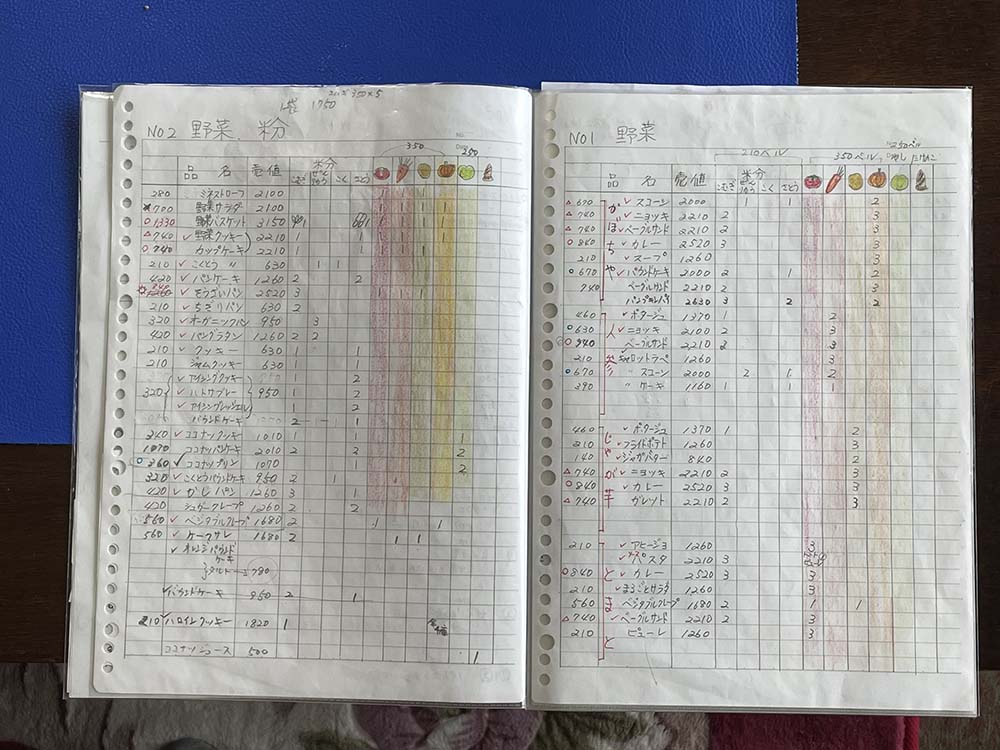 2コで 350×5
1袋 1750
NO2 野菜、粉
350
250
品名 売値 粉
こむぎ こく さとう
280 ミネストローフ 2100
×700 野菜サラダ 2100 1 1 1 1
○1330 野菜バスケット 3150
△740 ✓野菜クッキー 2210 1 1 1 1 1
○740 カップケーキ 2210 1 1 1 1 1
210 ✓こくとう 〃 630 1 1
420 ✓パンケーキ 1260 2 2
✓そうざいパン 2520 3 1 1 1
210 ✓ちぎりパン 630 2
320 ✓オーガニックパン 950 3
420 ✓パングラタン 1260 2 2
210 ✓クッキー 630 1 1
210 ジャムクッキー 630 1 1
✓アイシングクッキー 1 2
320 ✓ハトサブレー 950 1 2
✓アイシングプレッツェル 1 2
パウンドケーキ 2 1
340 ✓ココナツクッキー 1010 1 1 1
1070 ココナツパンケーキ 2010 2 2 2
○360 ✓ココナツプリン 1070 2
320 ✓こくとうパウンドケーキ 950 2 1
420 ✓かしパン 1260 3 1
420 シュガークレープ 1260 2 2
560 ✓ベジタブルクレープ 1680 2 1 1
560 ✓ケークサレ 1680 2 1 1
✓オレンジパウンドケーキ
タルト 780
✓パウンドケーキ 950 2 1
210 ✓ハロインクッキー 1820 1
ココナツジュース 500 1
NO1 野菜
210ベル
350ベル
250ベル
品名 売値 粉
こむぎ こく さとう
かぼちゃ
△670 ✓スコーン 2000 1 1 2
△740 ✓ニョッキ 2210 2 3
△740 ✓ベーグルサンド 2210 2 3
○840 ✓カレー 2520 3 3
210 ✓スープ 1260 3
○670 ✓パウンドケーキ 2000 2 1 2
740 ベーグルサンド 2210 2 3
2630 3 2 2
人参
460 ✓ポタージュ 1370 1 2
○630 ✓ニョッキ 2100 2 3
ベーグルサンド 2210 2 3
210 キャロットラペ 1260 3
○670 〃 スコーン 2000 2 1 2
390 〃 ケーキ 1160 1 1 1
じゃが芋
460 ✓ポタージュ 1370 1 2
210 ✓フライドポテト 1260 3
140 ✓ジャガバター 840 2
△740 ✓ニョッキ 2210 2 3
○840 ✓カレー 2520 3 3
△740 ガレット 2210 2 3
とまと
210 ✓アヒージョ 1260 3
✓パスタ 2210 3
○840 ✓カレー 2520 3 3
210 ✓まるごとサラダ 1260 3
560 ベジタブルクレープ 1680 2 1 1
△740 ✓ベーグルサンド 2210 2 3
210 ピューレ 1260 3